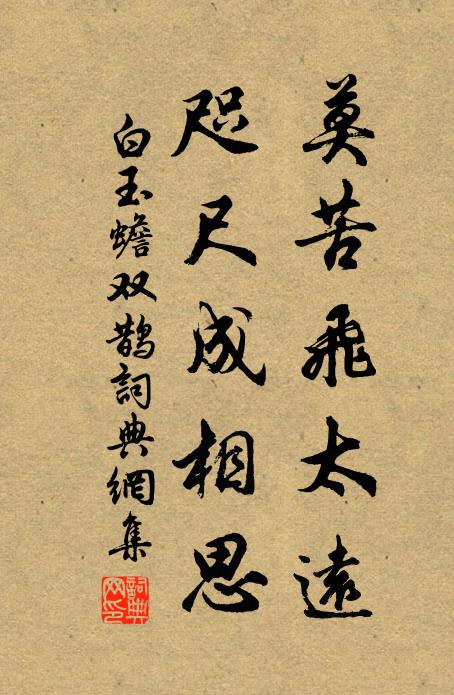 莫苦飛太遠
咫尺成相思
白玉蟾双鵲詞典網集
詞典網印